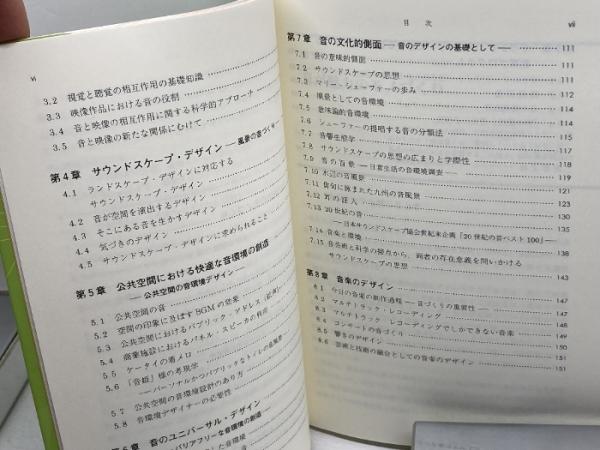 vi
3.2 視覚と聴覚の相互作用の基礎知識
3.3 映像作品における音の役割
3.4 音と映像の相互作用に関する科学的アプローチ
3.5 音と映像の新たな関係にむけて
第4章 サウンドスケープ・デザイン―風景の音づくり―
4.1 ランドスケープ・デザインに対応する
サウンドスケープ・デザイン
4.2 音が空間を演出するデザイン
4.3 そこにある音を生かすデザイン
4.4 気づきのデザイン
4.5 サウンドスケープ・デザインに求められること
第5章 公共空間における快適な音環境の創造
―公共空間の音環境デザイン―
5.1 公共空間の音
5.2 空間の印象に及ぼすBGMの効果
5.3 公共空間におけるパブリック・アドレス(拡声)
5.4 商業施設におけるパネル・スピーカの利用
5.5 ケータイの着メロ
5.6 「音姫」様の考現学
―パーソナルかつパブリックなトイレの音風景
5.7 公共空間の音環境設計のあり方
5.8 音環境デザイナーの必要性
第6章 音のユニバーサル・デザイン
バリアフリーな音環境の創造―
した音環境
目次 vii
第7章 音の文化的側面―音のデザインの基礎として― 111
7.1 音の意味的側面 111
7.2 サウンドスケープの思想 111
7.3 マリー・シェーファーの歩み
7.4 風景としての音環境
7.5 意味論的音環境
7.6 シェーファーの提唱する音の分類法
7.7 音響生態学
7.8 サウンドスケープの思想の広まりと学際性
7.9 音の百景―日常生活の音環境調査―
7.10 水辺の音風景
7.11 俳句に詠まれた九州の音風景
7.12 耳の証人
7.13 20世紀の音
―日本サウンドスケープ協会世紀末企画「20世紀の音ベスト100」―
7.14 音楽と環境
7.15 音芸術と科学の接点から,両者の存在意義を問いかける
サウンドスケープの思想
第8章 音楽のデザイン
8.1 今日の音楽の制作過程―音づくりの重要性―
8.2 マルチトラック・レコーディング
8.3 マルチトラック・レコーディングでしかできない音楽
8.4 コンサートの音づくり
8.5 響きのデザイン
8.6 芸術と技術の融合としての音楽のデザイン